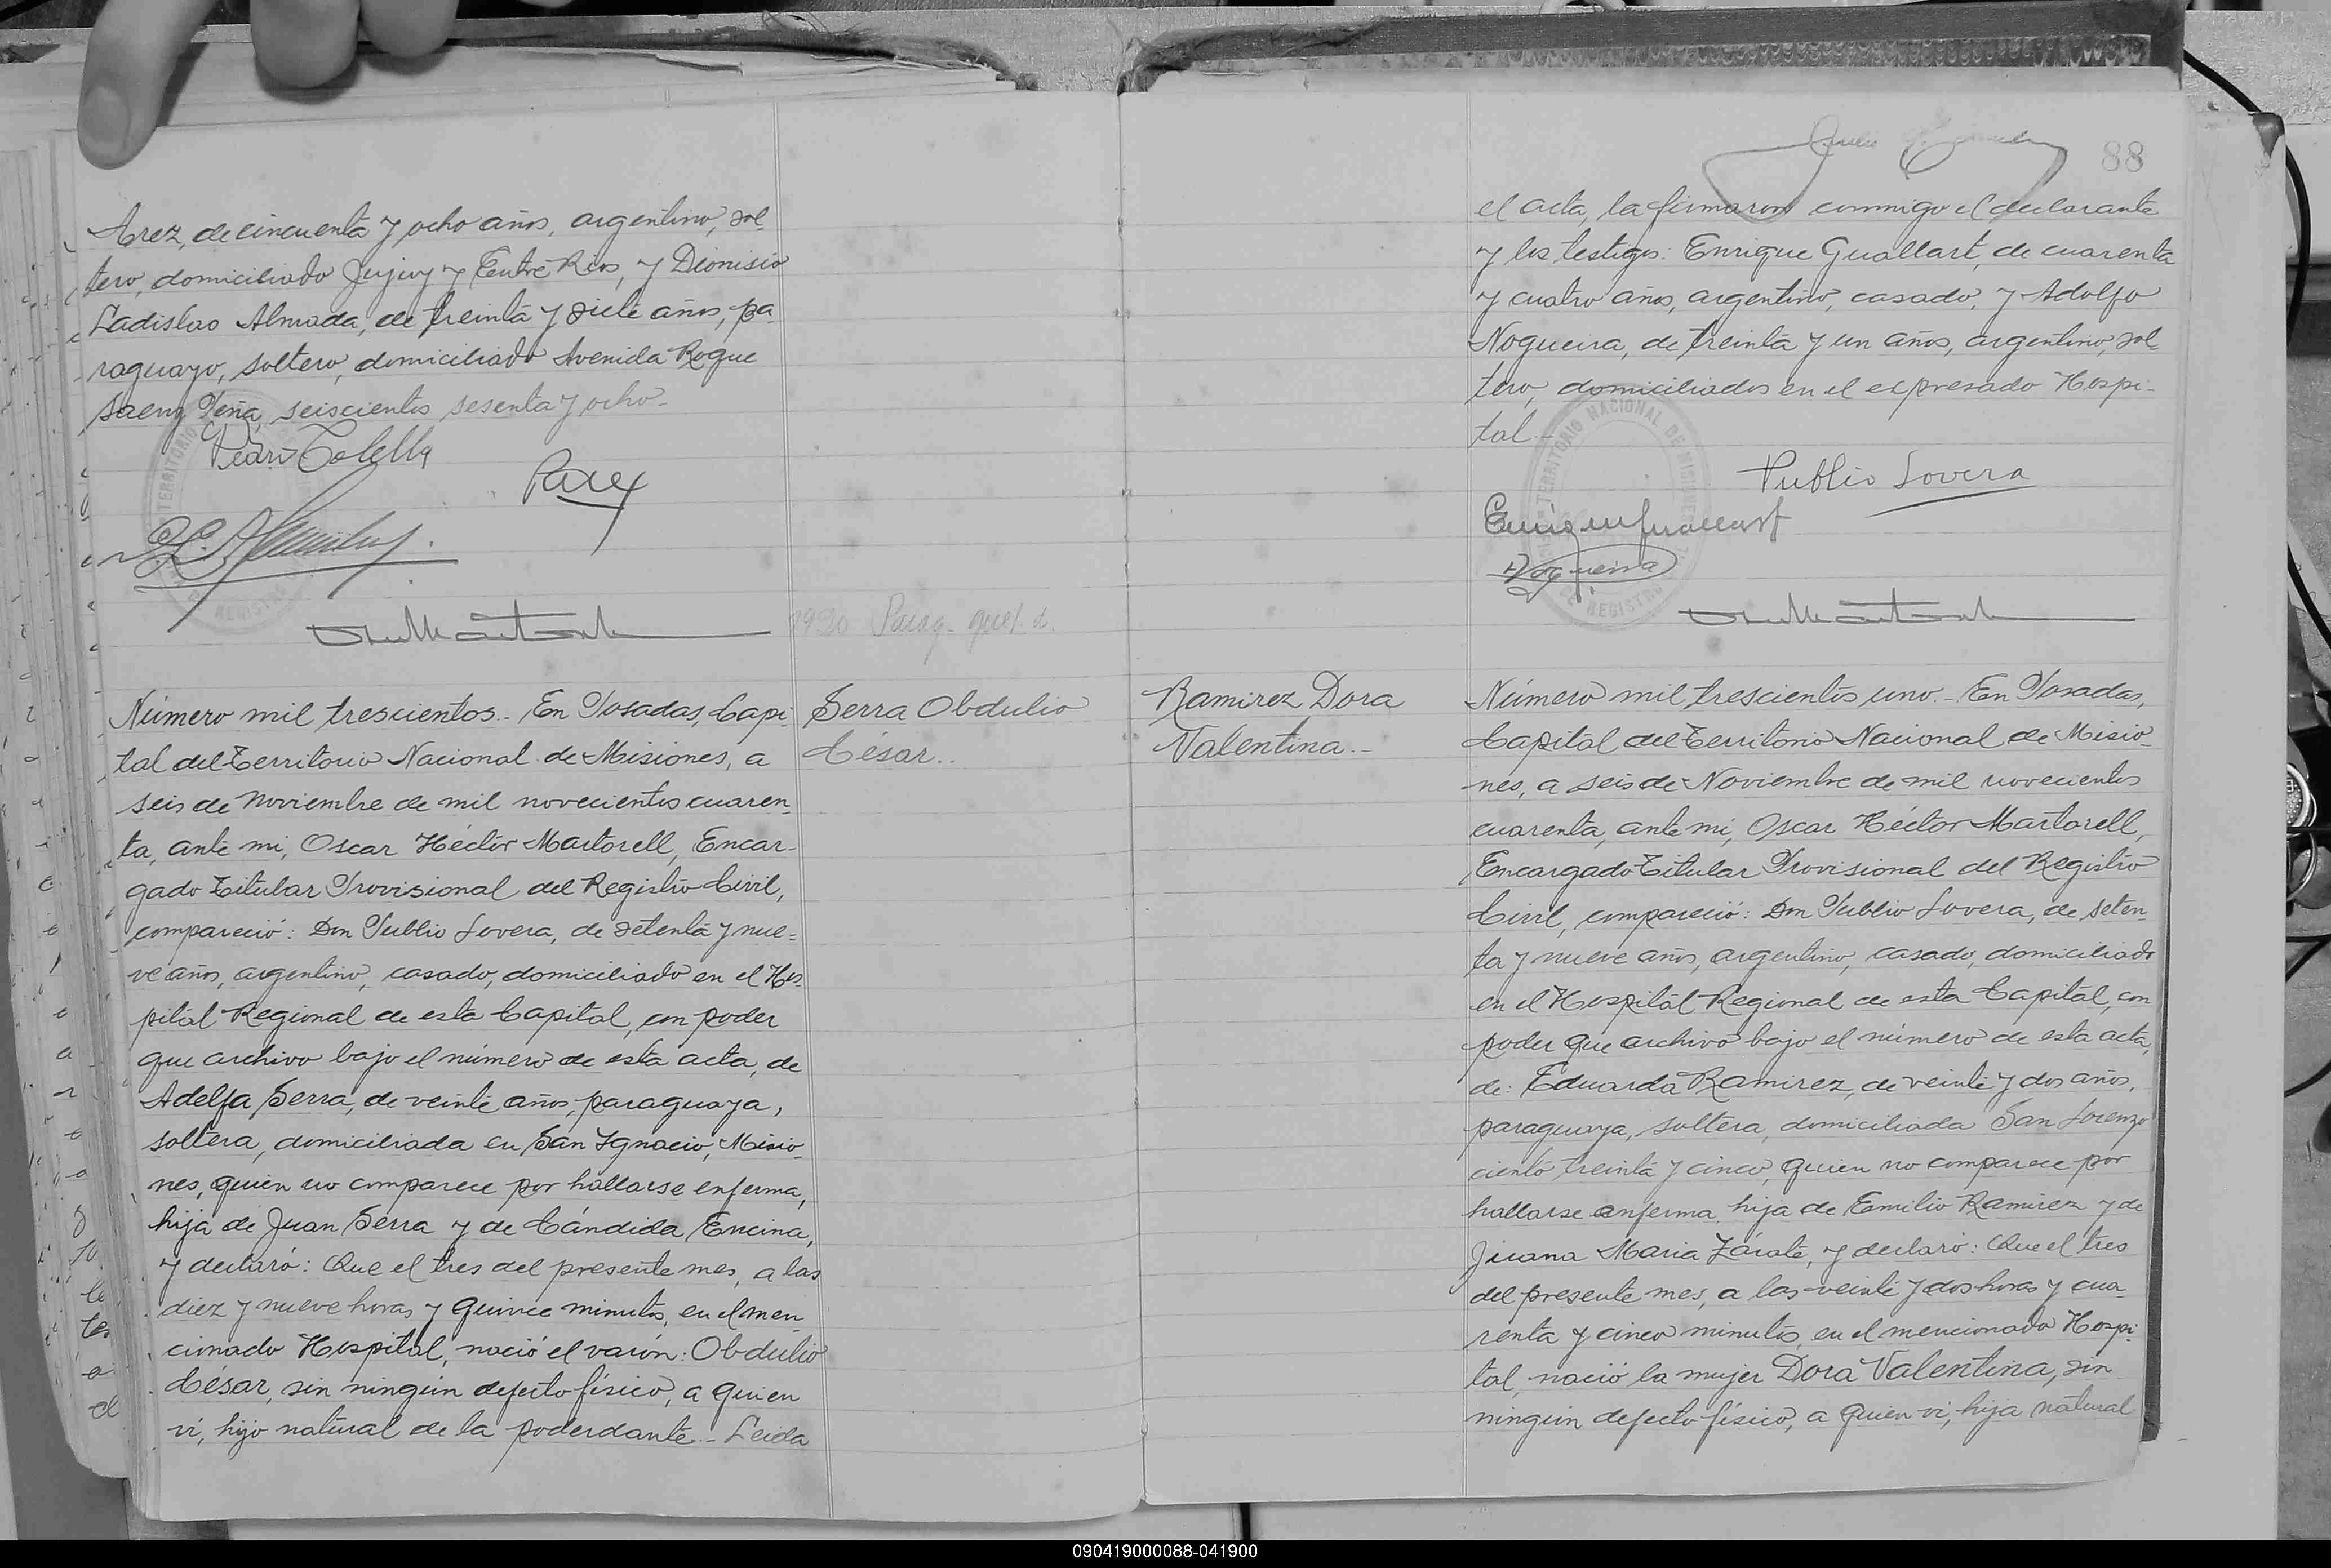 Arez, de cincuenta y ocho años, argentino, sol-
tero, domiciliado Jujuy y Entre Rios, y Dionisio
Ladislao Almada, de treinta y siete años, pa-
raguayo, soltero, domiciliado Avenida Roque
Saenz Peña, seiscientos sesenta y ocho-
TERRITORIO
REGISTRO
1920 Parag.
Número mil trescientos.- En Posadas, Capi-
tal del Territorio Nacional de Misiones, a
seis de noviembre de mil novecientos cuaren-
ta, ante mi, Oscar Héctor Martorell, Encar-
gado Titular Provisional del Registro Civil,
compareció: Don Publio Lovera, de setenta y nue-
ve años, argentino, casado, domiciliado en el Hos-
pital Regional de esta Capital, con poder
que archivo bajo el número de esta acta, de
Adelfa Serra, de veinte años, paraguaya,
soltera, domiciliada en San Ignacio, Misio-
nes, quien no comparece por hallarse enferma,
hija de Juan Serra y de Cándida Encina,
y declaró: Que el tres del presente mes, a las
diez y nueve horas y quince minutos, en el men-
cionado Hospital, nació el varón: Obdulio
César, sin ningún defecto físico, a quien
vi, hijo natural de la poderdante.- Leida
Serra Obdulio
César..
88
el acta, la firmaron conmigo el declarante
y los testigos: Enrique Guallart, de cuarenta
y cuatro años, argentino, casado, y Adolfo
Nogueira, de treinta y un años, argentino, sol-
tero, domiciliados en el expresado Hospi-
tal.-
TERRITORIO NACIONAL DE MISIONES
REGISTRO
Publio Lovera
Ramirez Dora
Valentina.-
Número mil trescientos uno.- En Posadas,
Capital del Territorio Nacional de Misio-
nes, a seis de Noviembre de mil novecientos
cuarenta, ante mi, Oscar Héctor Martorell,
Encargado Titular Provisional del Registro
Civil, compareció: Don Publio Lovera, de seten-
ta y nueve años, argentino, casado, domiciliado
en el Hospital Regional de esta Capital, con
poder que archivo bajo el número de esta acta,
de: Eduarda Ramirez, de veinte y dos años,
paraguaya, soltera, domiciliada San Lorenzo
ciento treinta y cinco, quien no comparece por
hallarse enferma, hija de Emilio Ramirez y de
Juana Maria Zárate, y declaró: Que el tres
del presente mes, a las veinte y dos horas y cua-
renta y cinco minutos, en el mencionado Hospi-
tal, nació la mujer Dora Valentina, sin
ningún defecto físico, a quien vi, hija natural
090419000088-041900